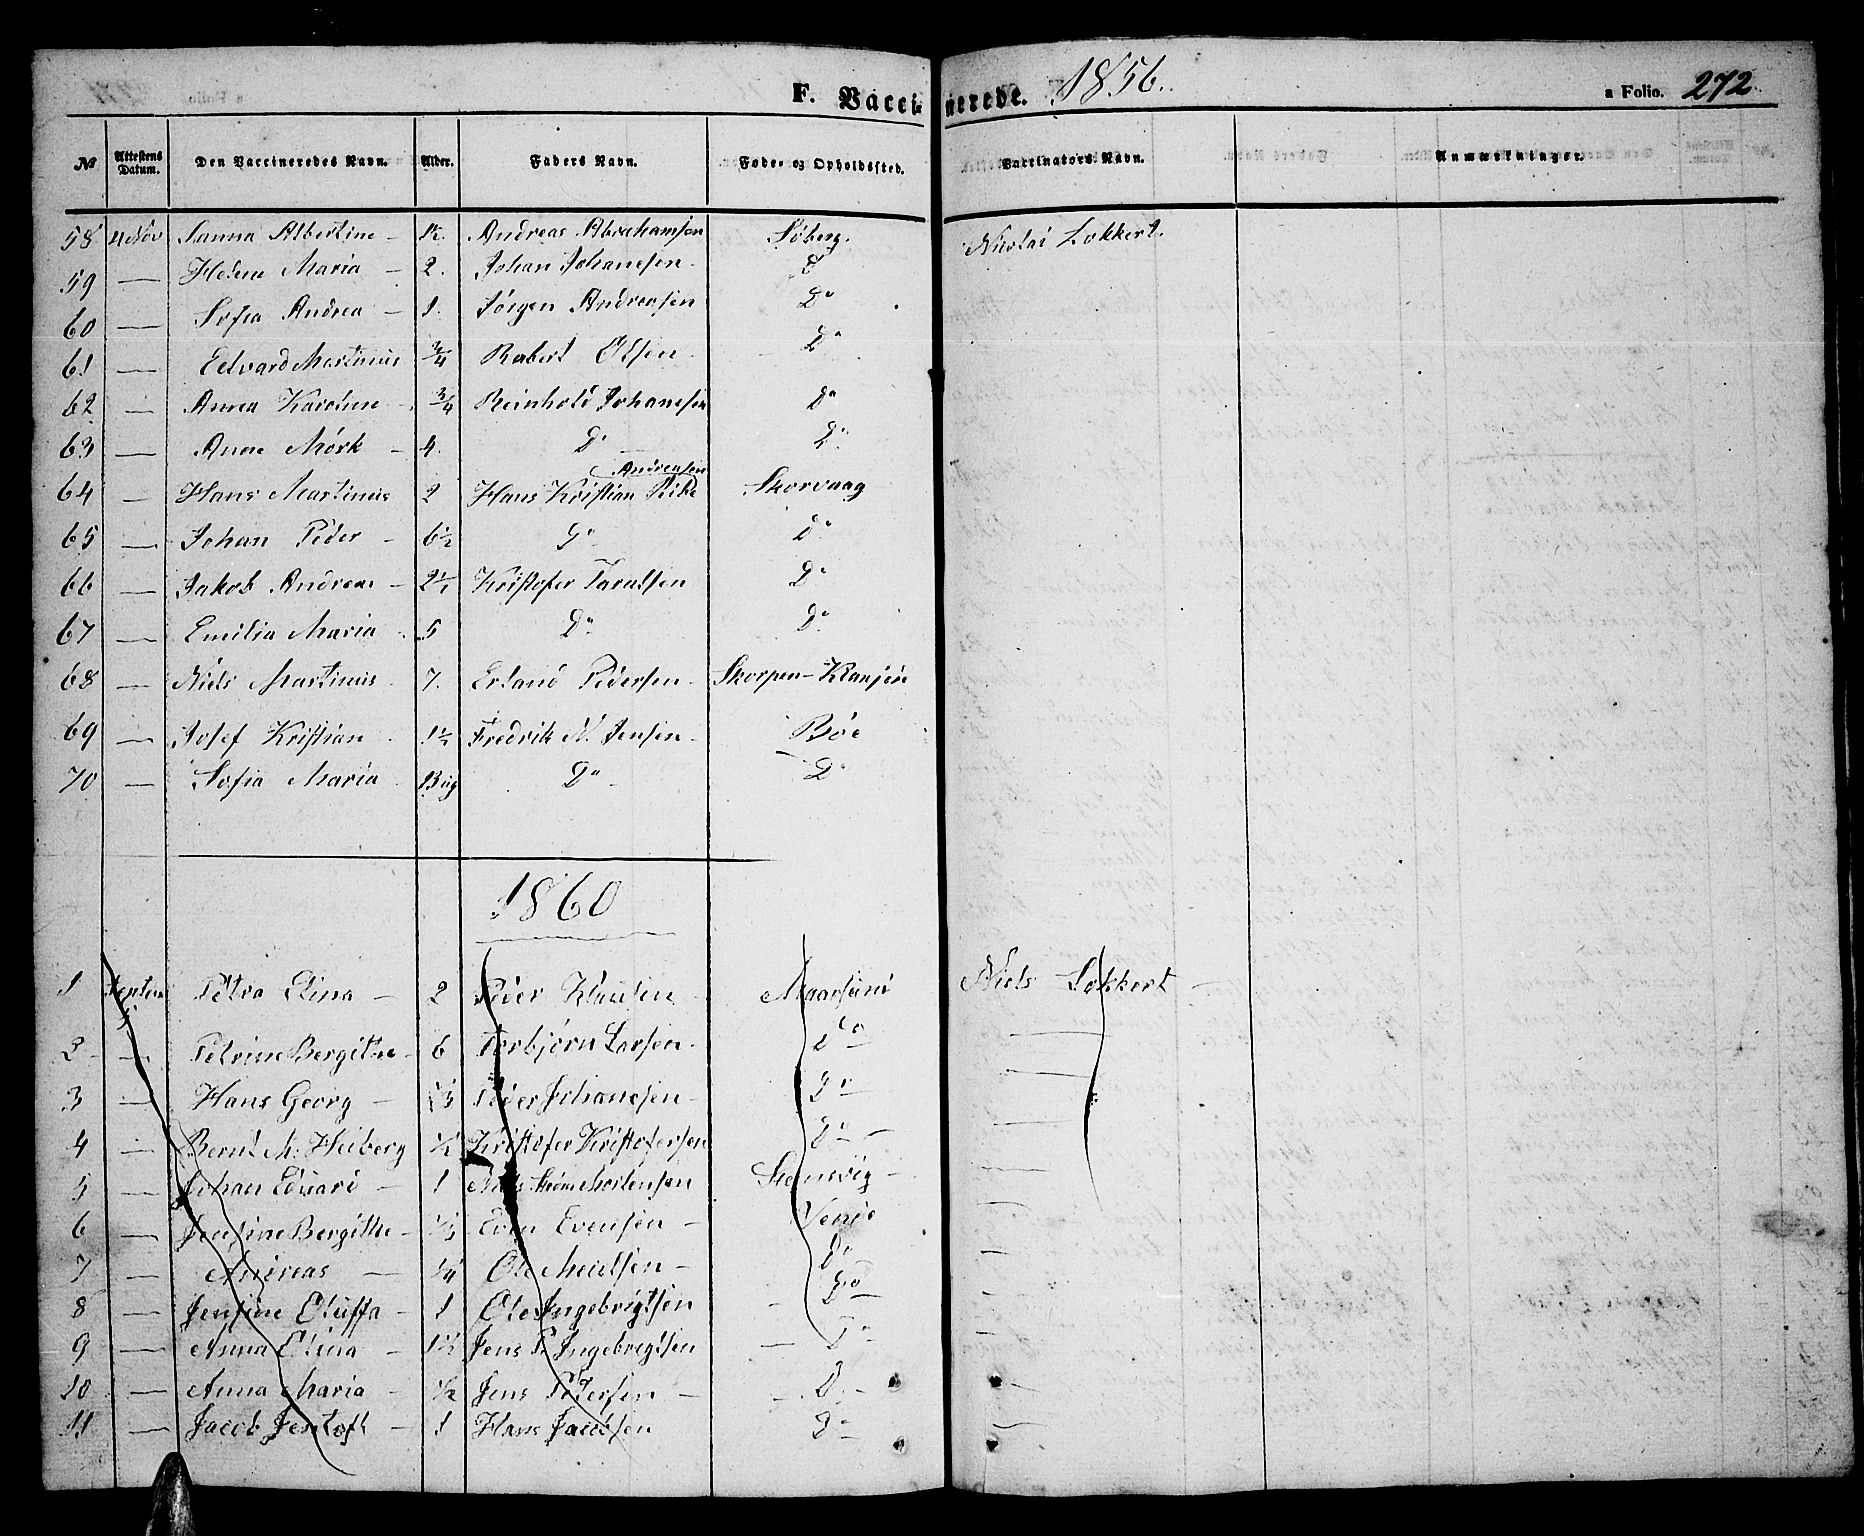 F. Vaccinerede. 1856. a Folio. 272.
No Attestens Datum. Den Vaccineredes Navn. Alder. Faders Navn. Føde- og Opholdssted. Vaccinators Navn. Anmærkninger.
58 4 Nov Sanna Albertine - 1½. Andreas Abrahamsen Søberg. Nicolai Lokkert.
59 — Helene Maria - 2. Johan Johansen - Do
60 — Sofia Andrea - 1. Jørgen Andreasen Do
61 — Edvard Martinus ¾ Robert Olsen - Do
62 — Anna Karoline - ¾ Reinhold Johansen Do
63 — Anne Mörk - 4. Do Do
Andreasen
64 — Hans Martinus 2 Hans Kristian Skorvaag
65 — Johan Peder - 6½ Do Do
66 — Jakob Andreas - 2½ Kristofer Do
67 — Emilia Maria 5 Do Do
68 — Niels Martinus 7. Erland Pedersen -
69 — Josef Kristian 1½ Fredrik N. Jensen - Böe
70 — Sofia Maria Do Do
1860
1 Septem Petra Elina - 2 Peder Klausen Niels Lokkert -
2 — Petrine Bergithe - 6 Torbjörn Larsen - Do
3 — Hans Georg - ⅓ Peder Johansen - Do
4 — Bernt M. Heiberg ½ Kristofer Kristofersen Do
5 — Johan Edvard - 1 Mortensen
6 — Jensine Bergithe - ⅓ Even Evensen -
7 — Andreas - ¼ Ole - Do
8 — Jensine 1 Ole Ingebrigtsen Do
9 — Anna Elina - 1½ Jens P. Ingebrigtsen Do
10 — Anna Maria - ½ Jens Pedersen - D.
11 — Jacob Jentoft - 1 Hans Jacobsen Do